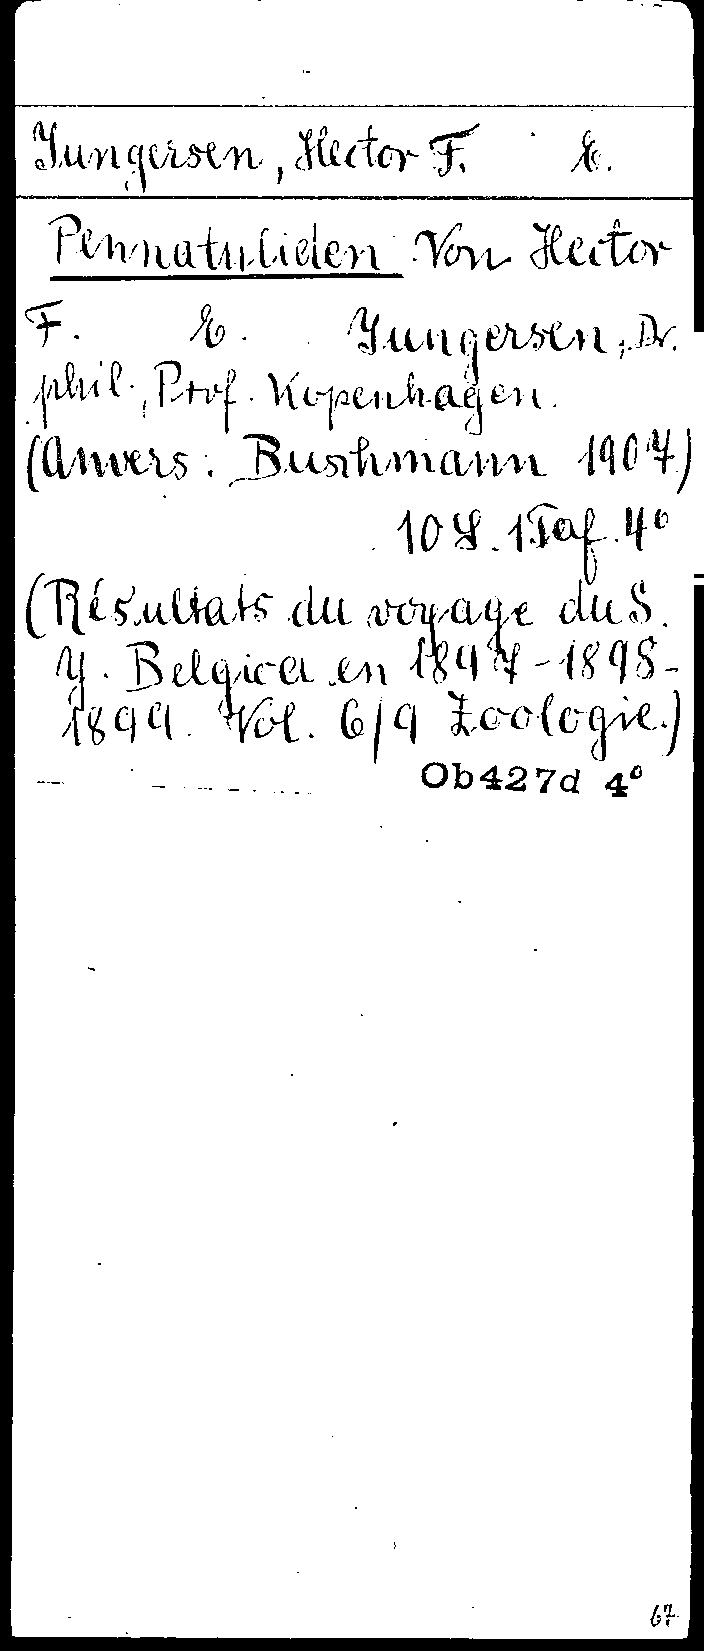 Jungersen, Hector F. E.
Pennatuliden Von Hector
F. E. Jungersen, Dr.
phil., Prof. Kopenhagen.
(Anvers: Buschmann 1907)
10 S. 1 Taf. 4°
(Résultats du voyage du S.
Y. Belgica en 1897-1898-
1899. Vol. 6/9 Zoologie.)
Ob427d 4°
67